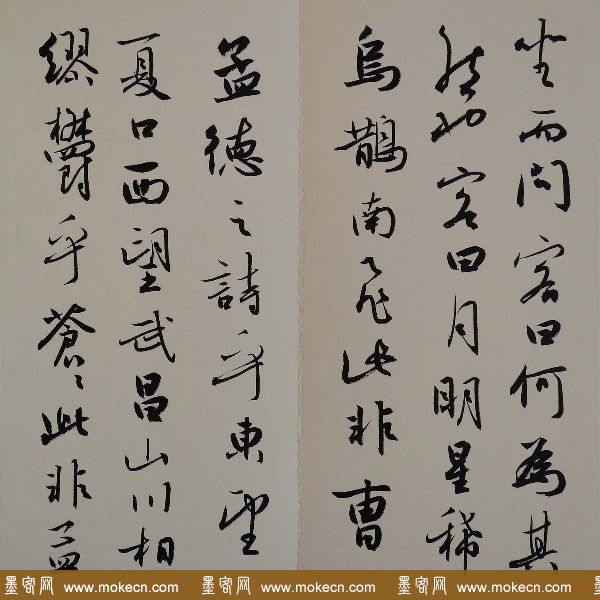 坐而問客曰何為其
然也客曰月明星稀
烏鵲南飛此非曹
孟德之詩乎東望
夏口西望武昌山川相
繆鬱乎蒼々此非孟
墨客网 www.mokecn.com 墨客网 www.mokecn.com 墨客网 www.mokecn.com